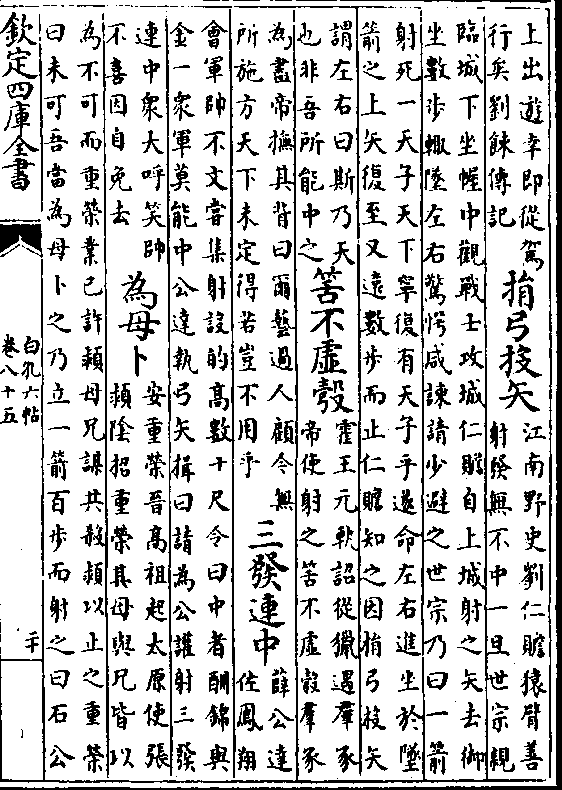 上出遊幸即從駕
行矣劉餗傳記
捎弓投矢
江南野史劉仁贍猿臂善
射發無不中一旦世宗親
臨城下坐幄中觀戰士攻城仁贍自上城射之矢去御
坐數步輙墜左右驚愕咸諫請少避之世宗乃曰一箭
射死一天子天下寧復有天子乎遂命左右進坐於墜
箭之上矢復至又遠數步而止仁贍知之因捎弓投矢
謂左右曰斯乃天
也非吾所能中之
筈不虛彀
霍王元軌詔從獵遇羣豕
帝使射之筈不虛彀羣豕
為盡帝撫其背曰爾藝過人顧今無
所施方天下未定得若豈不用乎
三發連中
薛公達
佐鳳翔
會軍帥不文嘗集射設的高數十尺令曰中者酬錦與
金一衆軍莫能中公達執弓矢揖曰請為公讙射三發
連中衆大呼笑帥
不喜因自免去
為母卜
安重榮晉高祖起太原使張
頴陰招重榮其母與兄皆以
為不可而重榮業已許頴母兄謀共殺頴以止之重榮
曰未可吾當為母卜之乃立一箭百步而射之曰石公
欽定四庫全書
白孔六帖
卷八十五
二十